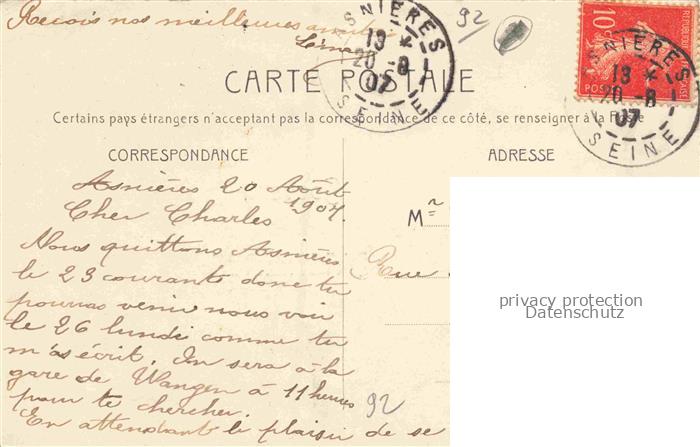 Reçois nos meilleures amitiés
92
ASNIÈRES
13 *
20 -8
07
SEINE
10c
POSTES
ASNIÈRES
13 *
20 -8
07
SEINE
CARTE POSTALE
Certains pays étrangers n'acceptant pas la correspondance de ce côté, se renseigner à la Poste
CORRESPONDANCE
ADRESSE
Asnières 20 Août
1907.
Cher Charles
Nous quittons Asnières
le 23 courant donc tu
pourras venir nous voir
le 26 lundi comme tu
m'as écrit. On sera à la
gare de Wangen à 11 heures
pour te chercher.
En attendant le plaisir de se
92
Mr
Rue
privacy protection
Datenschutz